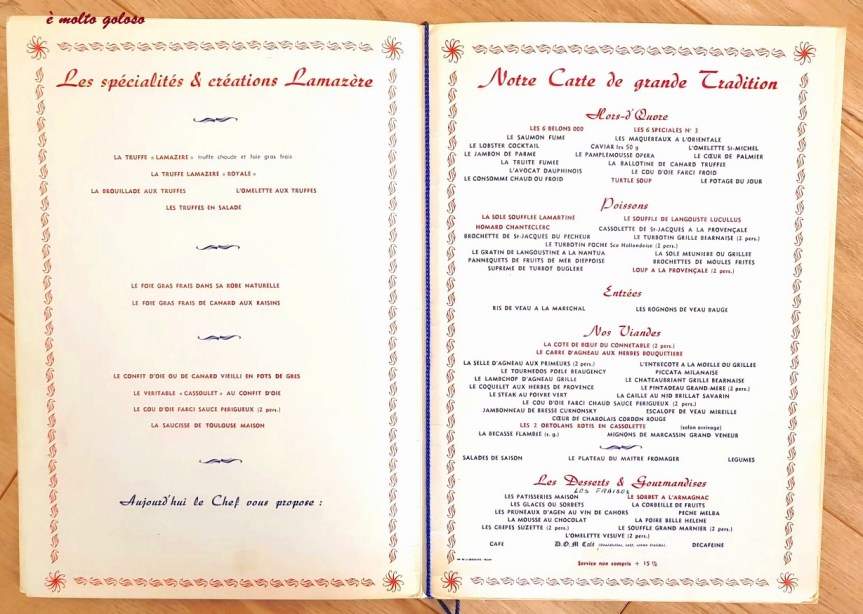 è molto goloso
Les spécialités & créations Lamazère
LA TRUFFE « LAMAZERE » truffe chaude et foie gras frais
LA TRUFFE LAMAZERE « ROYALE »
LA BROUILLADE AUX TRUFFES L'OMELETTE AUX TRUFFES
LES TRUFFES EN SALADE
LE FOIE GRAS FRAIS DANS SA ROBE NATURELLE
LE FOIE GRAS FRAIS DE CANARD AUX RAISINS
LE CONFIT D'OIE OU DE CANARD VIEILLI EN POTS DE GRES
LE VERITABLE « CASSOULET » AU CONFIT D'OIE
LE COU D'OIE FARCI SAUCE PERIGUEUX (2 pers.)
LA SAUCISSE DE TOULOUSE MAISON
Aujourd'hui le Chef vous propose :
Notre Carte de grande Tradition
Hors-d'Œuvre
LES 6 BELONS 000 LES 6 SPECIALES N° 3
LE SAUMON FUME LES MAQUEREAUX A L'ORIENTALE
LE LOBSTER COCKTAIL CAVIAR les 50 g L'OMELETTE ST-MICHEL
LE JAMBON DE PARME LE PAMPLEMOUSSE OPERA LE CŒUR DE PALMIER
LA TRUITE FUMEE LA BALLOTINE DE CANARD TRUFFEE
L'AVOCAT DAUPHINOIS LE COU D'OIE FARCI FROID
LE CONSOMME CHAUD OU FROID TURTLE SOUP LE POTAGE DU JOUR
Poissons
LA SOLE SOUFFLEE LAMARTINE LE SOUFFLE DE LANGOUSTE LUCULLUS
HOMARD CHANTECLERC CASSOLETTE DE St-JACQUES A LA PROVENÇALE
BROCHETTE DE St-JACQUES DU PECHEUR LE TURBOTIN GRILLE BEARNAISE (2 pers.)
LE TURBOTIN POCHE Sce Hollandaise (2 pers.)
LE GRATIN DE LANGOUSTINE A LA NANTUA LA SOLE MEUNIERE OU GRILLEE
PANNEQUETS DE FRUITS DE MER DIEPPOISE BROCHETTES DE MOULES FRITES
SUPREME DE TURBOT DUGLERE LOUP A LA PROVENÇALE (2 pers.)
Entrées
RIS DE VEAU A LA MARECHAL LES ROGNONS DE VEAU BAUGE
Nos Viandes
LA COTE DE BŒUF DU CONNETABLE (2 pers.)
LE CARRE D'AGNEAU AUX HERBES BOUQUETIERE
LA SELLE D'AGNEAU AUX PRIMEURS (2 pers.) L'ENTRECOTE A LA MOELLE OU GRILLEE
LE TOURNEDOS POELE BEAUGENCY PICCATA MILANAISE
LE LAMBCHOP D'AGNEAU GRILLE LE CHATEAUBRIANT GRILLE BEARNAISE
LE COQUELET AUX HERBES DE PROVENCE LE PINTADEAU GRAND-MERE (2 pers.)
LE STEAK AU POIVRE VERT LA CAILLE AU NID BRILLAT SAVARIN
LE COU D'OIE FARCI CHAUD SAUCE PERIGUEUX (2 pers.)
JAMBONNEAU DE BRESSE CURNONSKY ESCALOPE DE VEAU MIREILLE
CŒUR DE CHAROLAIS CORDON ROUGE
LES 2 ORTOLANS ROTIS EN CASSOLETTE (selon arrivage)
LA BECASSE FLAMBEE (s. g.) MIGNONS DE MARCASSIN GRAND VENEUR
SALADES DE SAISON LE PLATEAU DU MAITRE FROMAGER LEGUMES
Les Desserts & Gourmandises
LES FRAISES
LES PATISSERIES MAISON LE SORBET A L'ARMAGNAC
LES GLACES OU SORBETS LA CORBEILLE DE FRUITS
LES PRUNEAUX D'AGEN AU VIN DE CAHORS PECHE MELBA
LA MOUSSE AU CHOCOLAT LA POIRE BELLE HELENE
LES CREPES SUZETTE (2 pers.) LE SOUFFLE GRAND MARNIER (2 pers.)
L'OMELETTE VESUVE (2 pers.)
CAFE D.O.M Café DECAFEINE
Service non compris + 15 %